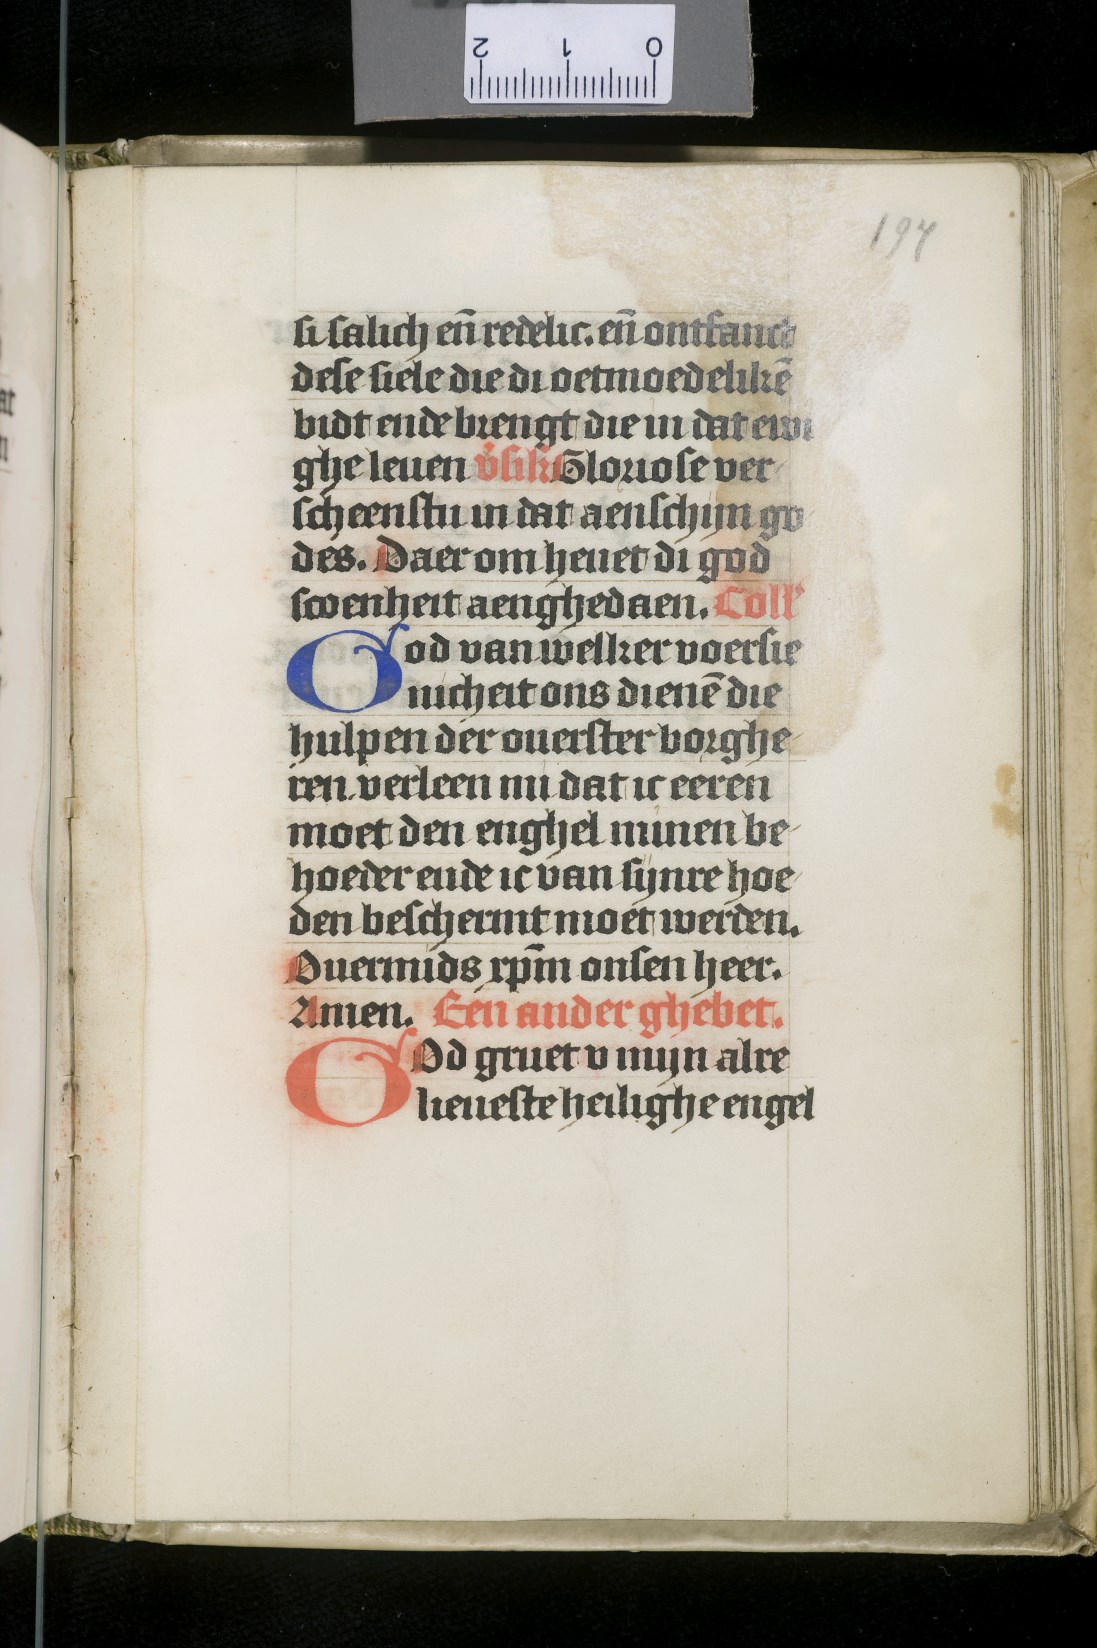 197
si salich en̄ redelic. en̄ ontfanct
dese siele die di oetmoedelikē
bidt ende brengt die in dat ewi
ghe leuen v̓sik̓ Gloriose ver
scheenstu in dat aenschijn go
des. Daer om heuet di god
scoenheit aenghedaen. Coll̓
God van welker voersie
nicheit ons dienē die
hulpen der ouerster borghe
ren. verleen mi dat ic eeren
moet den enghel minen be
hoeder ende ic van sijnre hoe
den beschermt moet werden.
Ouermids xp̄m onsen heer.
Amen. Een ander ghebet.
GOd gruet v mijn alre
lieueste heilighe engel
0 1 2